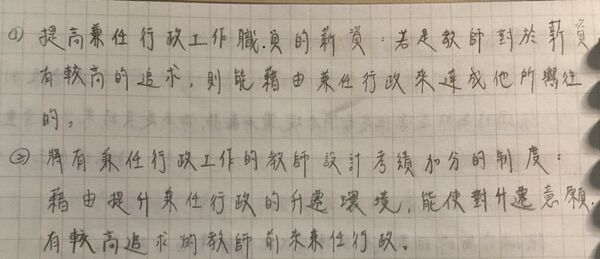 ① 提高兼任行政工作職員的薪資：若是教師對於薪資
有較高的追求，則能藉由兼任行政來達成他所嚮往
的。
② 將有兼任行政工作的教師設計考績加分的制度：
藉由提升兼任行政的升遷環境，能使對升遷意願
有較高追求的教師前來兼任行政。